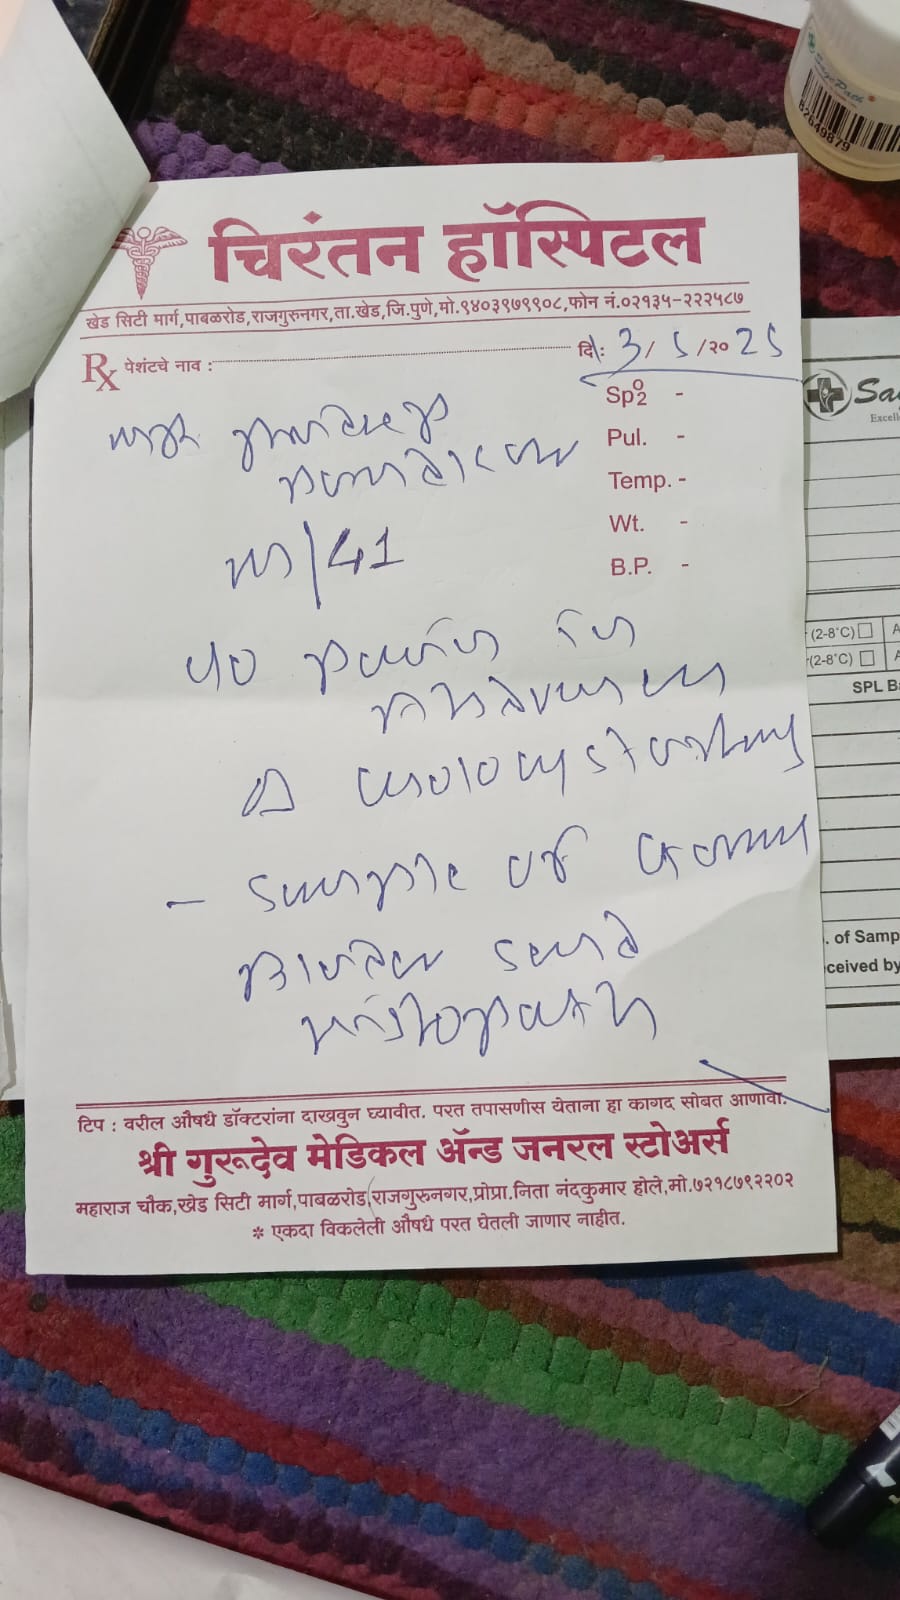 SagePath
82649879
चिरंतन हॉस्पिटल
खेड सिटी मार्ग,पाबळरोड,राजगुरुनगर,ता.खेड,जि.पुणे,मो.९४०३९७९९०८,फोन नं.०२१३५-२२२५८७
Rx पेशंटचे नाव : दि.: 3/5/२० 25
SpO2 -
Pul. -
Temp. -
Wt. -
B.P. -
M/41
c/o pain in
abdomen
cholecystectomy
- sample of
send
histopath
टिप : वरील औषधे डॉक्टरांना दाखवुन घ्यावीत. परत तपासणीस येताना हा कागद सोबत आणावा.
श्री गुरूदेव मेडिकल ॲन्ड जनरल स्टोअर्स
महाराज चौक,खेड सिटी मार्ग,पाबळरोड,राजगुरुनगर,प्रोप्रा.निता नंदकुमार होले,मो.७२१८७९२२०२
* एकदा विकलेली औषधे परत घेतली जाणार नाहीत.
Sag
Excell
(2-8°C)
(2-8°C)
SPL B
. of Samp
ceived by